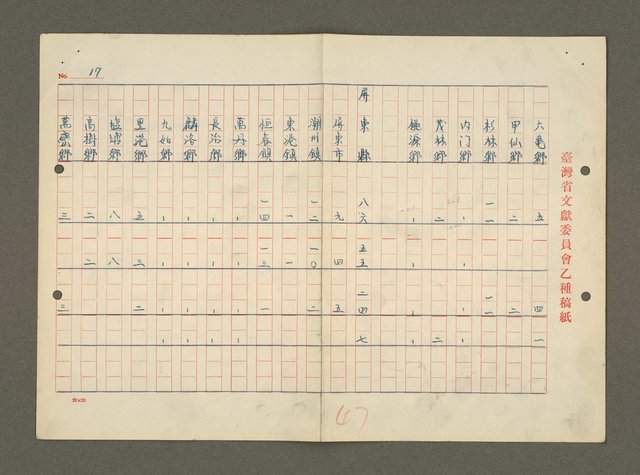 臺灣省文獻委員會乙種稿紙
六龜鄉 五 四 一
甲仙鄉 二 二
杉林鄉 一一 一一
內门鄉 、 、
茂林鄉 二 二
桃源鄉 、 、 、
屏東縣 八六 五五 二四 七
屏東市 九 四 五
潮州鎮 一二 一〇 二
東港鎮 一 一
恒春鎮 一四 一三 一
萬丹鄉 、 、
長治鄉 、 、 、
麟洛鄉 、 、 、
九如鄉 、 、 、
里港鄉 五 三 二
鹽埔鄉 八 八
高樹鄉 二 二
萬巒鄉 三 三
No. 17
47